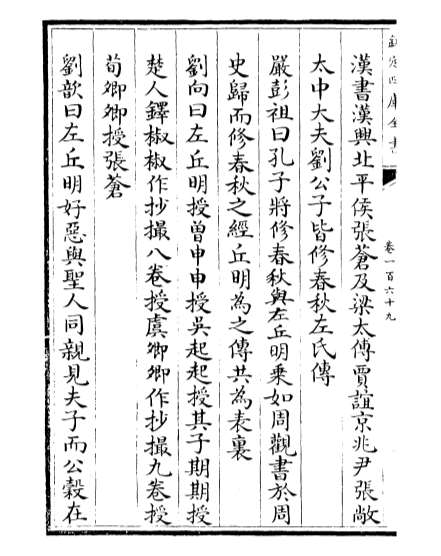 欽定四庫全書
卷一百六十九
漢書漢興北平侯張蒼及梁太傅賈誼京兆尹張敞
太中大夫劉公子皆修春秋左氏傳
嚴彭祖曰孔子將修春秋與左丘明乗如周觀書於周
史歸而修春秋之經丘明為之傳共為表裏
劉向曰左丘明授曽申申授吳起起授其子期期授
楚人鐸椒椒作抄撮八卷授虞卿卿作抄撮九卷授
荀卿卿授張蒼
劉歆曰左丘明好惡與聖人同親見夫子而公穀在